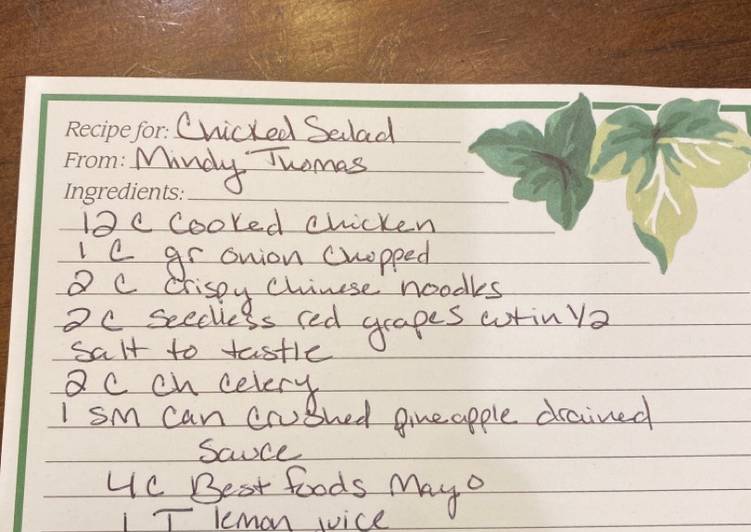 Recipe for: Chicked Salad
From: Mindy Thomas
Ingredients:
12 c cooked chicken
1 c gr onion chopped
2 c crispy Chinese noodles
2 c seedless red grapes cut in 1/2
salt to tastle
2 c ch celery
1 sm can crushed pineapple drained
Sauce
4c Best foods Mayo
1 T lemon juice